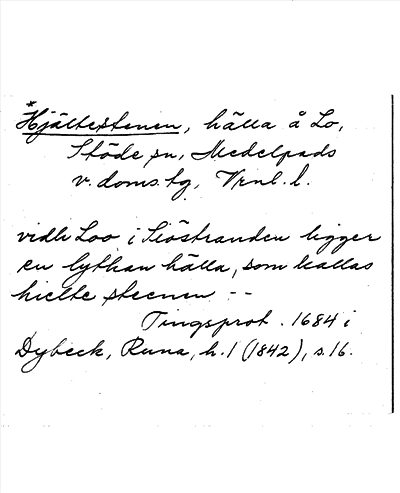 *Hjältestenen, hälla å Lo,
Stöde sn, Medelpads
v. doms. tg, Vrnl. l.
vidh Loo i Siöstranden ligger
en lythan hälla, som kallas
hielte steenen --
Tingsprot. 1684 i
Dybeck, Runa, h. 1 (1842), s. 16.